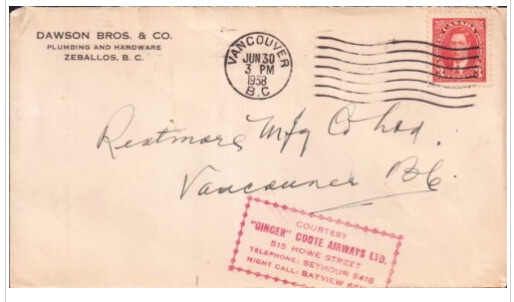 DAWSON BROS. & CO.
PLUMBING AND HARDWARE
ZEBALLOS, B. C.
VANCOUVER
JUN 30
3 PM
1938
B.C
CANADA
3
Restmore Mfg Co Ltd.
Vancouver B.C.
COURTESY
"GINGER" COOTE AIRWAYS LTD.
515 HOWE STREET
TELEPHONE: SEYMOUR 9416
NIGHT CALL: BAYVIEW